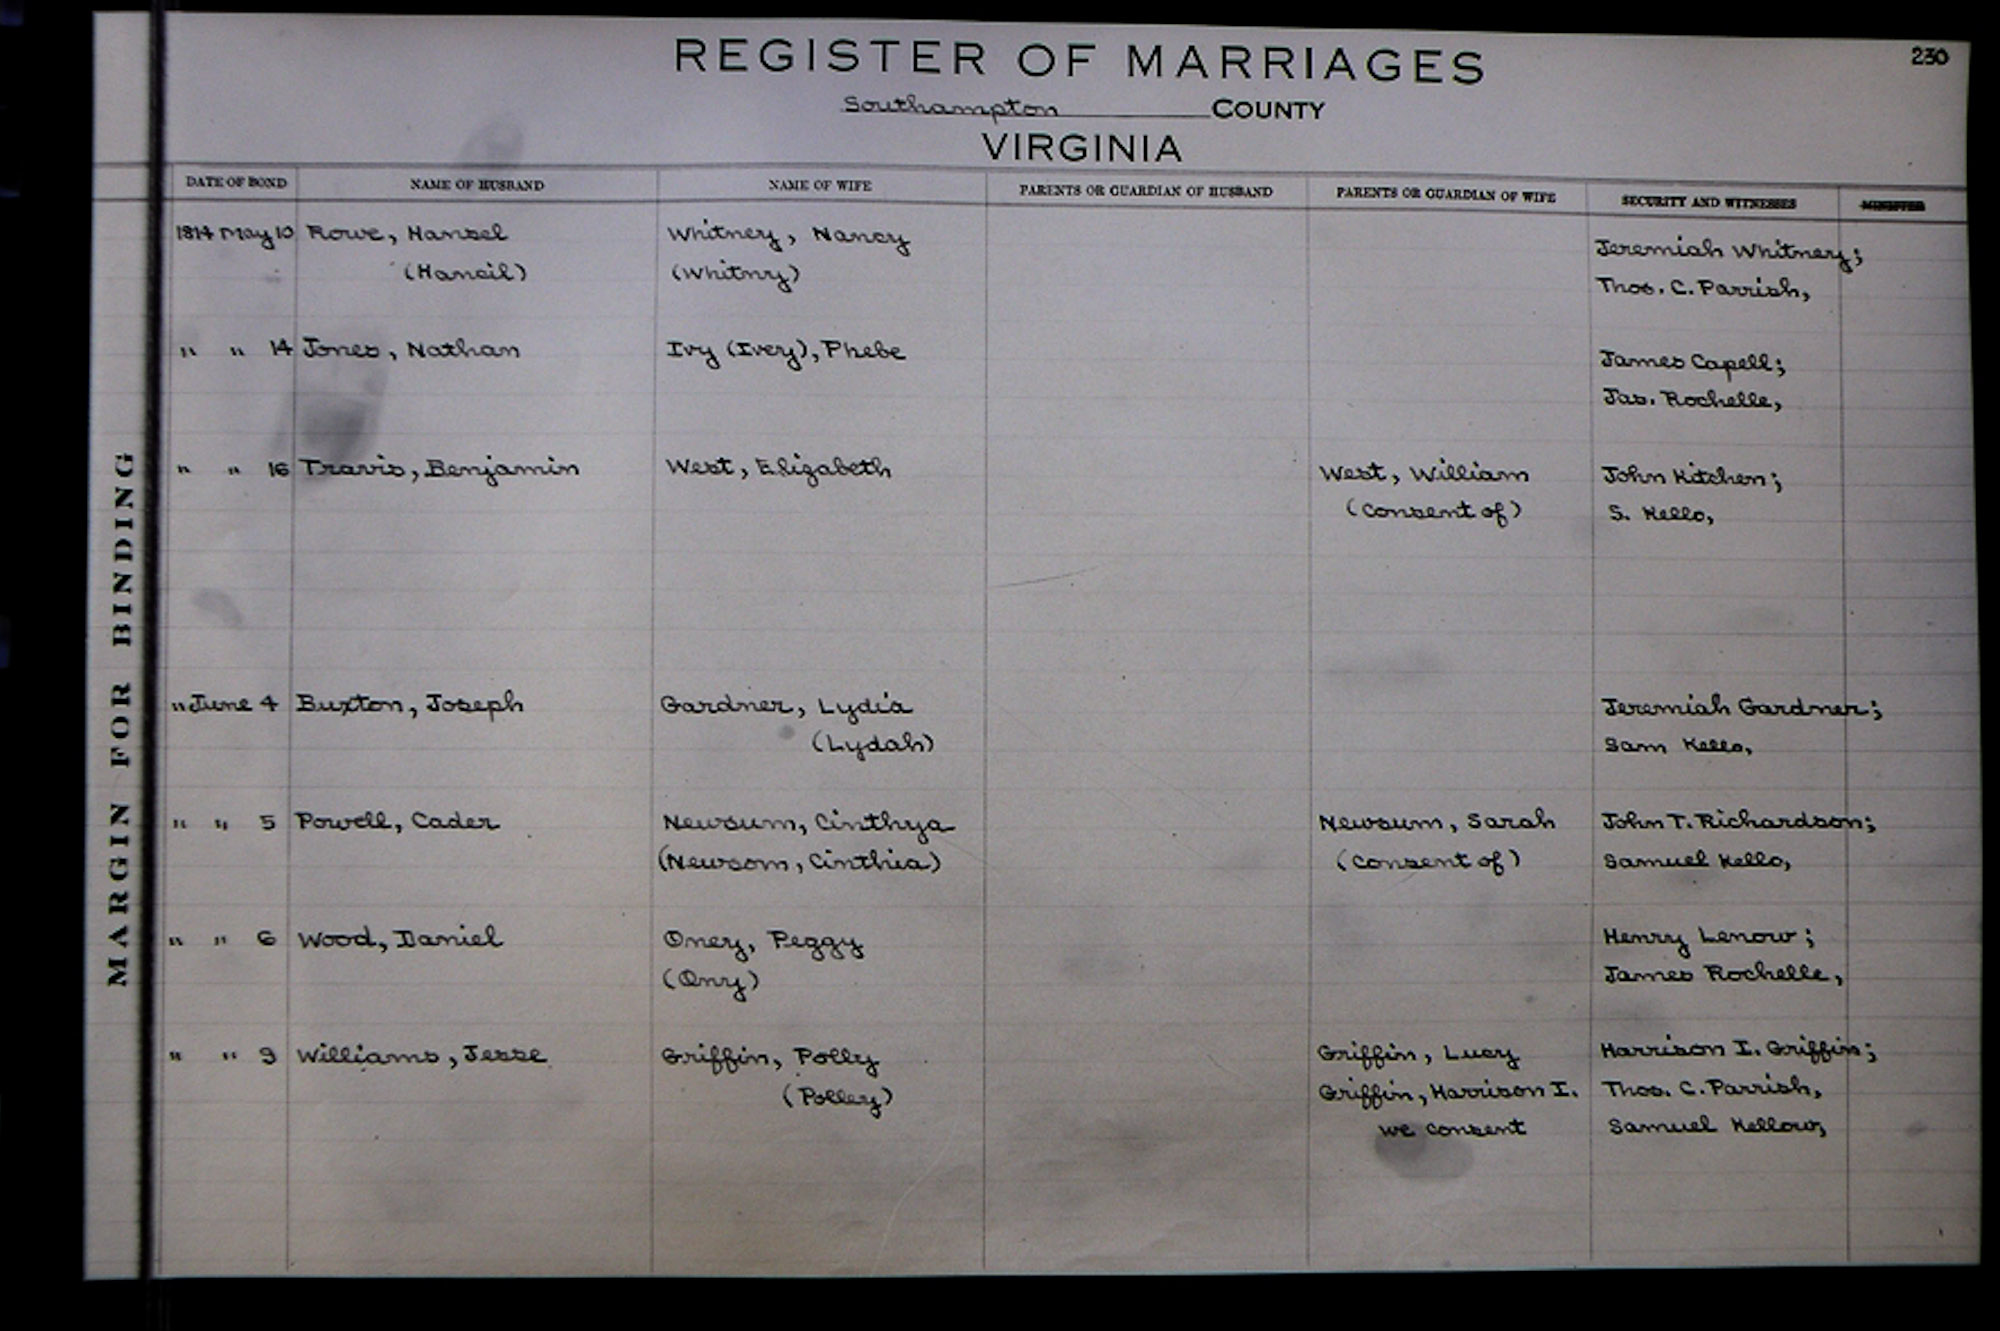 REGISTER OF MARRIAGES
230
Southampton COUNTY
VIRGINIA
MARGIN FOR BINDING
DATE OF BOND NAME OF HUSBAND NAME OF WIFE PARENTS OR GUARDIAN OF HUSBAND PARENTS OR GUARDIAN OF WIFE SECURITY AND WITNESSES MINISTER
1814 May 10 Rowe, Hansel Whitney, Nancy Jeremiah Whitney;
(Hancil) (Whitny) Thos. C. Parrish,
" " 14 Jones, Nathan Ivy (Ivey), Phebe James Capell;
Jas. Rochelle,
" " 16 Travis, Benjamin West, Elizabeth West, William John Kitchen;
(Consent of) S. Kello,
" June 4 Buxton, Joseph Gardner, Lydia Jeremiah Gardner;
(Lydah) Sam Kello,
" " 5 Powell, Cader Newsum, Cinthya Newsum, Sarah John T. Richardson;
(Newsom, Cinthia) (Consent of) Samuel Kello,
" " 6 Wood, Daniel Oney, Peggy Henry Lenow;
(Onry) James Rochelle,
" " 9 Williams, Jesse Griffin, Polly Griffin, Lucy Harrison I. Griffin;
(Polley) Griffin, Harrison I. Thos. C. Parrish,
we consent Samuel Kellow,